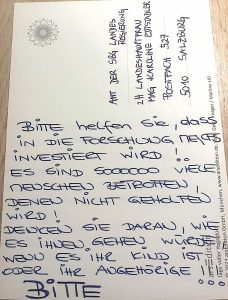 AMT DER SBG LANDES
REGIERUNG
ZH LANDESHAUPTFRAU
MAG KAROLINE EDTSTADLER
POSTFACH 527
5010 SALZBURG
BITTE helfen Sie, dass
in die FORSCHUNG MEHR
investiert wird!
ES SIND SOOOOOOO VIELE
MENSCHEN BETROFFEN,
DENEN NICHT GEHOLFEN
WIRD!
DENKEN SIE DARAN, WIE
ES IHNEN GEHEN WÜRDE
WENN ES IHR KIND IST
ODER IHR ANGEHÖRIGE!!!
BITTE